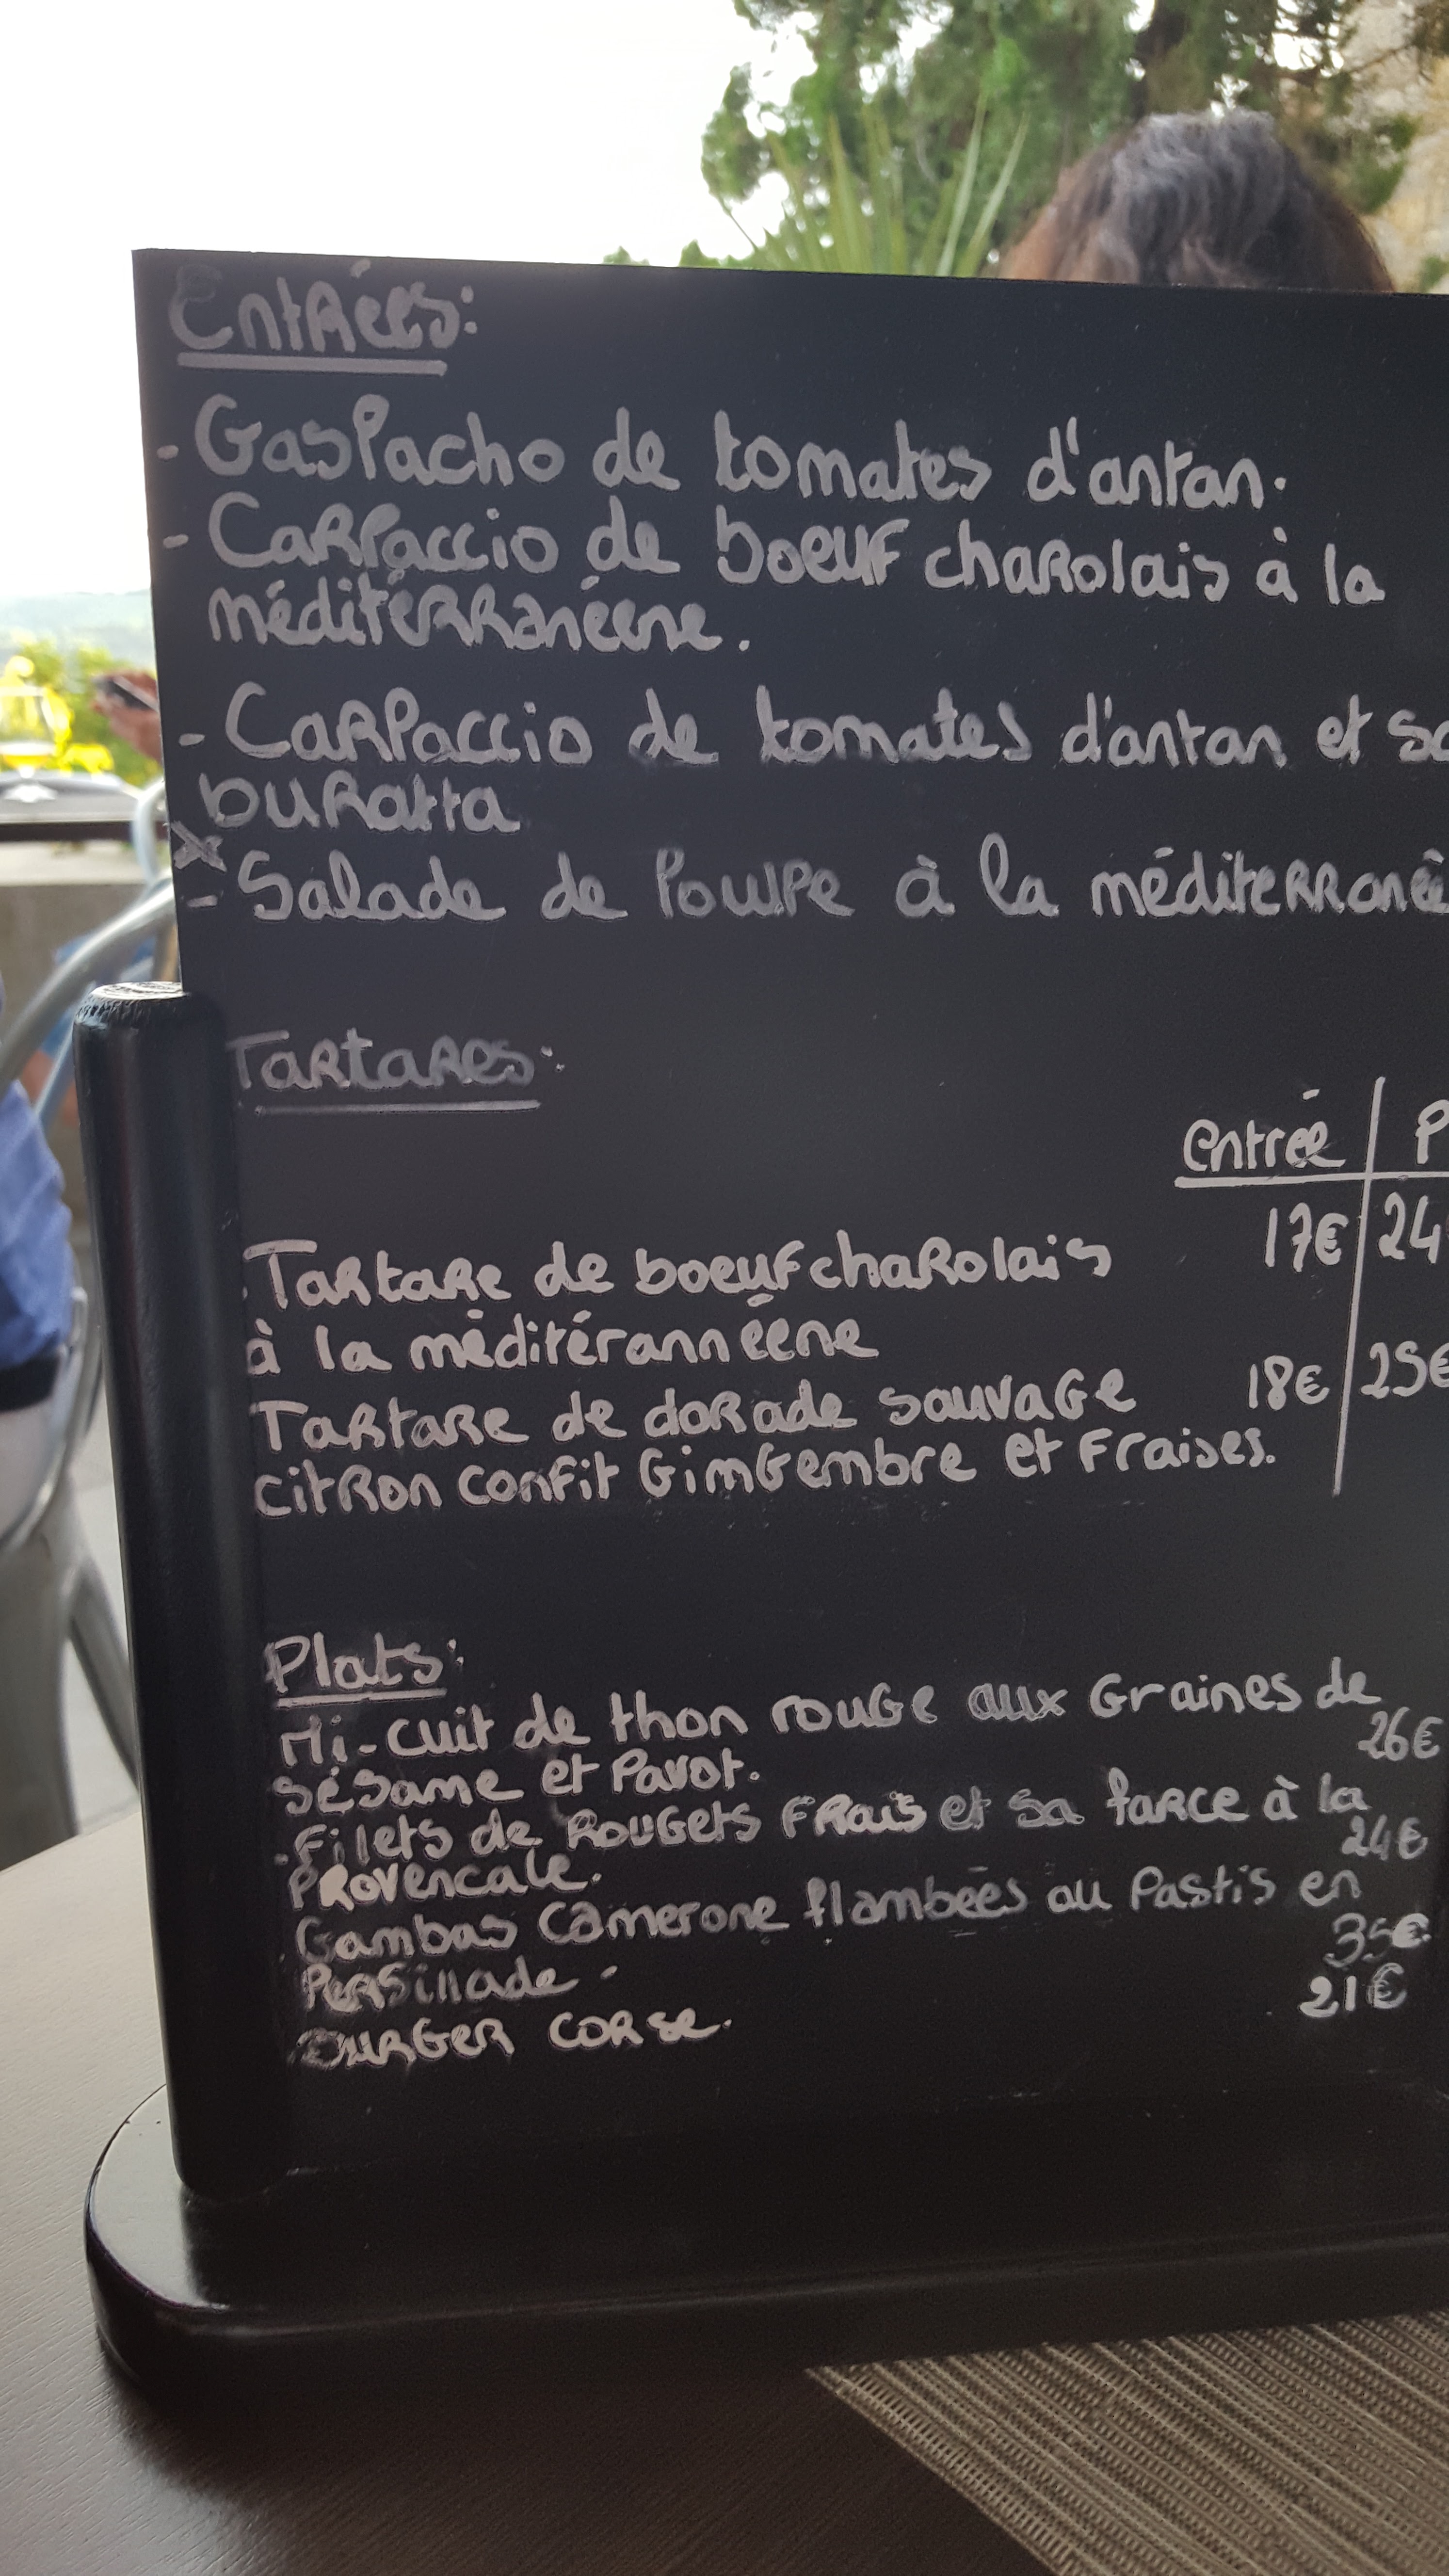 Entrées:
- Gaspacho de tomates d'antan.
- Carpaccio de boeuf charolais à la
méditérranéene.
- Carpaccio de tomates d'antan et sa
buratta
- Salade de Poulpe à la
Tartares:
entrée
17€ 24
Tartare de boeuf charolais
à la méditérannéene
18€ 25€
Tartare de dorade sauvage
citron confit Gimgembre et Fraises.
Plats:
Mi-cuit de thon rouge aux Graines de
26€
sésame et Pavot.
Filets de Rougets Frais et sa farce à la
24€
Provencale.
Gambas Camerone flambées au Pastis en
35€
Persillade.
21€
Burger corse.